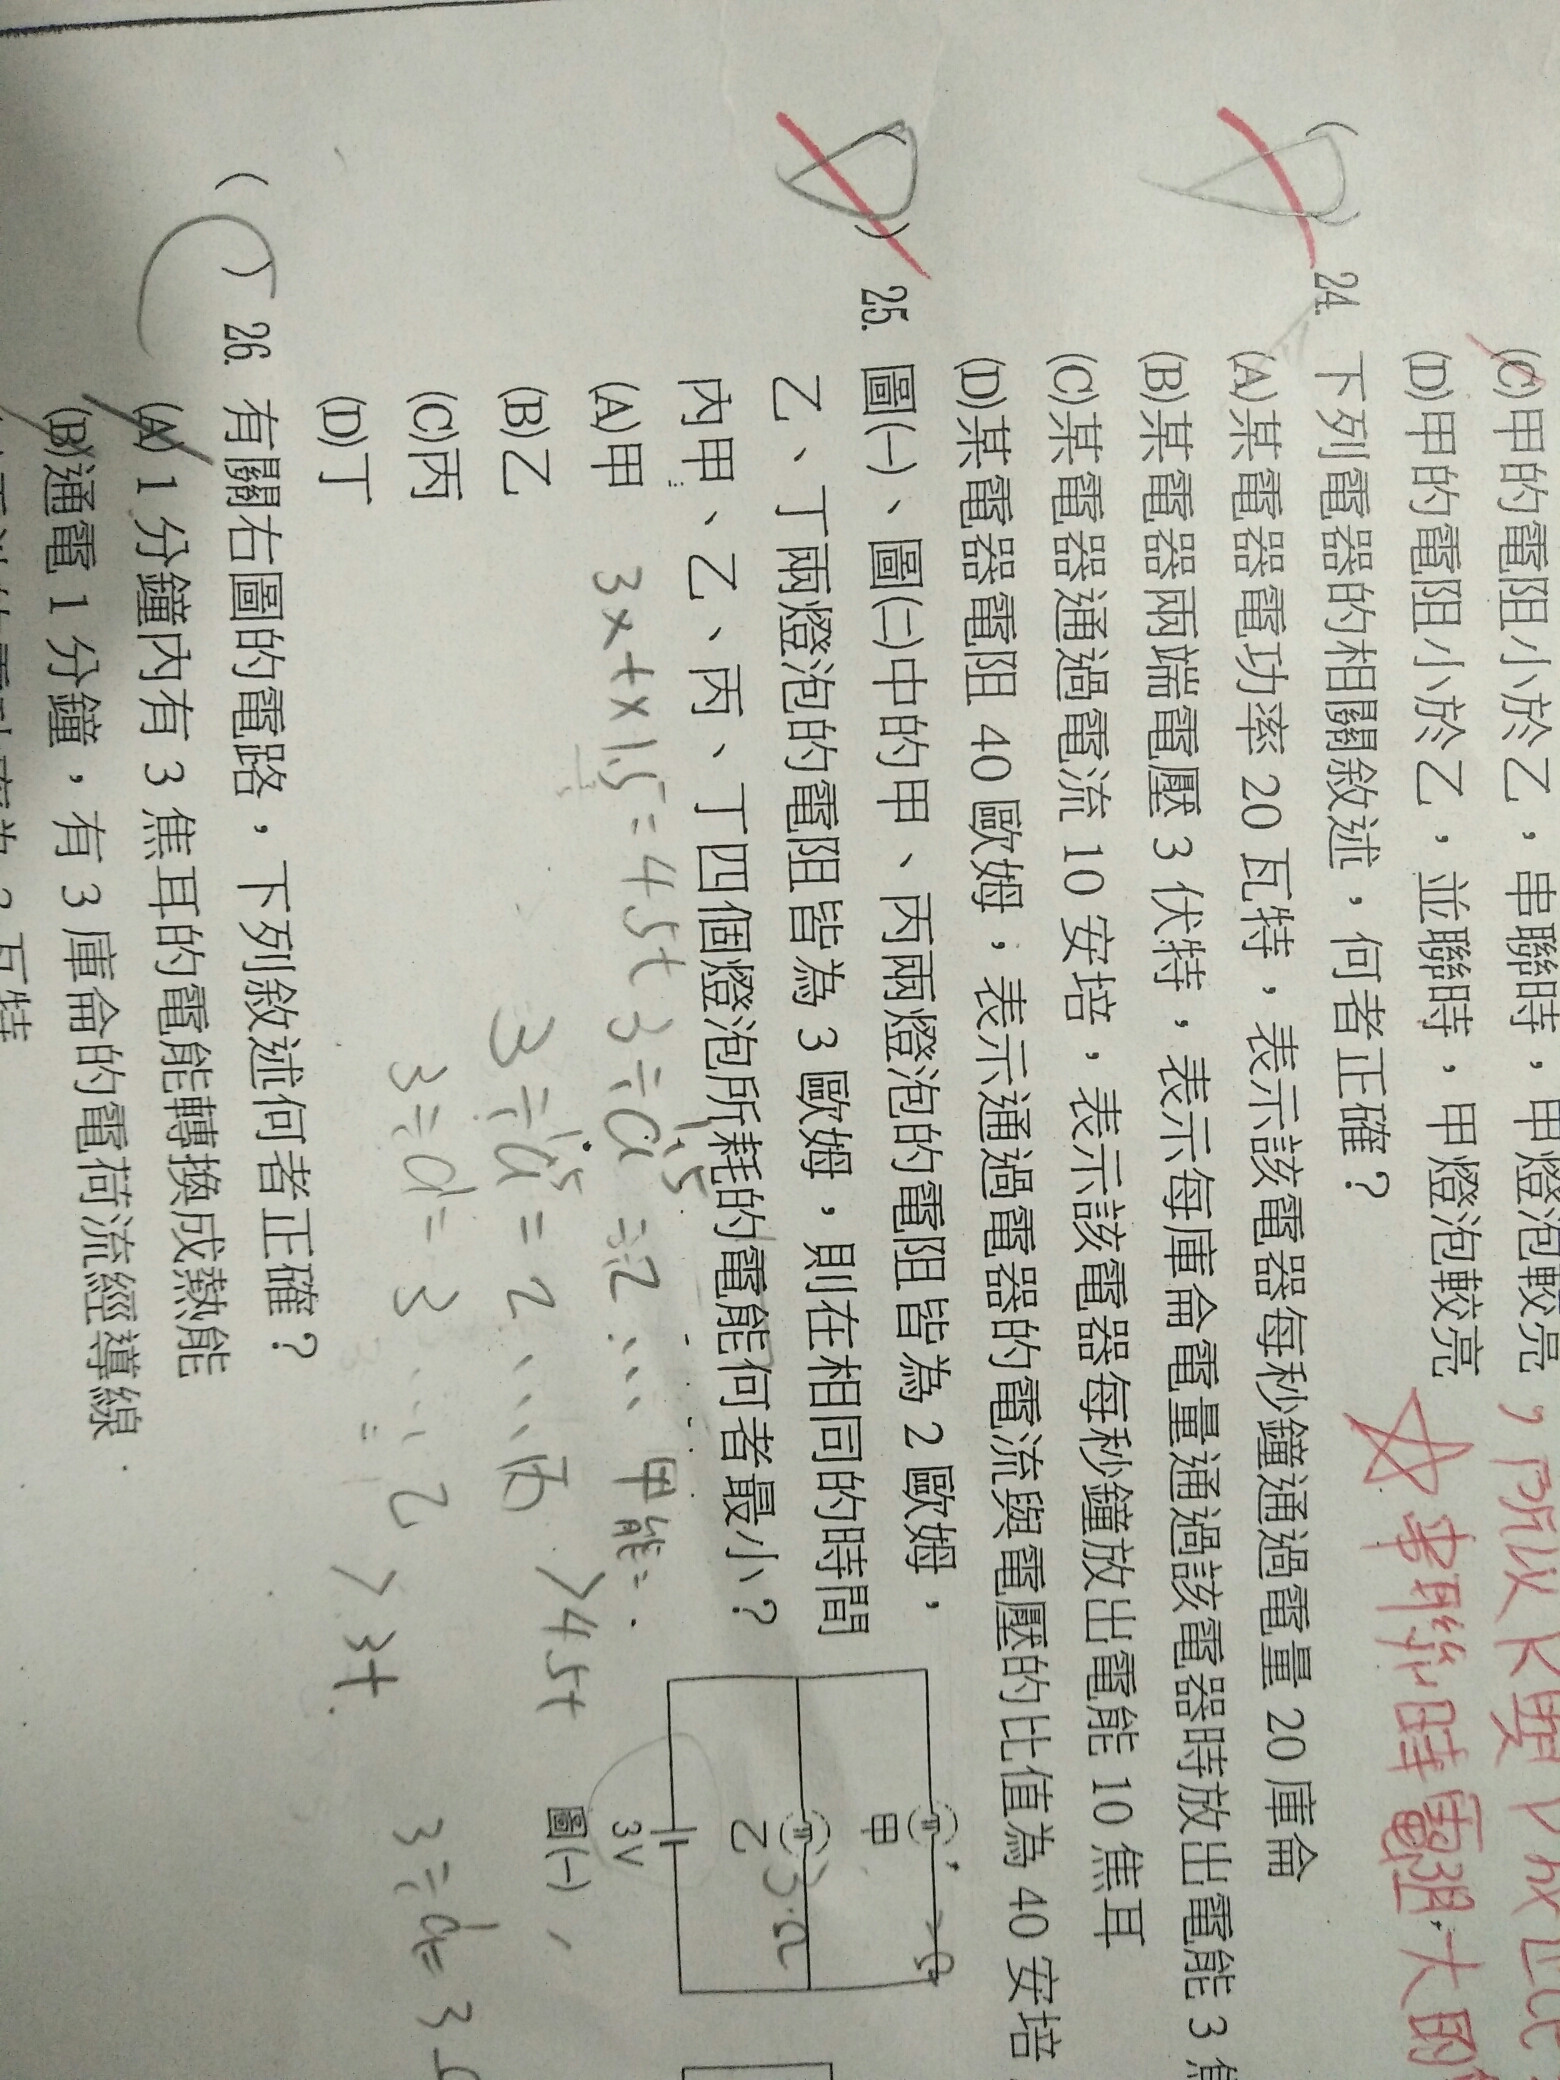 (C)甲的電阻小於乙，串聯時，甲燈泡較亮
(D)甲的電阻小於乙，並聯時，甲燈泡較亮
所以
串聯時電阻大的
( ) 24. 下列電器的相關敘述，何者正確？
(A)某電器電功率 20 瓦特，表示該電器每秒鐘通過電量 20 庫侖
(B)某電器兩端電壓 3 伏特，表示每庫侖電量通過該電器時放出電能 3 焦
(C)某電器通過電流 10 安培，表示該電器每秒鐘放出電能 10 焦耳
(D)某電器電阻 40 歐姆，表示通過電器的電流與電壓的比值為 40 安培
( ) 25. 圖(一)、圖(二)中的甲、丙兩燈泡的電阻皆為 2 歐姆，
乙、丁兩燈泡的電阻皆為 3 歐姆，則在相同的時間
內甲、乙、丙、丁四個燈泡所耗的電能何者最小？
(A)甲
(B)乙
(C)丙
(D)丁
3×t×1.5=4.5t
3÷a=2
甲能=
3÷a=2
>4.5t
3÷a=3
乙 >3t
甲
乙
3Ω
3V
圖(一)
( ) 26. 有關右圖的電路，下列敘述何者正確？
(A) 1 分鐘內有 3 焦耳的電能轉換成熱能
(B)通電 1 分鐘，有 3 庫侖的電荷流經導線